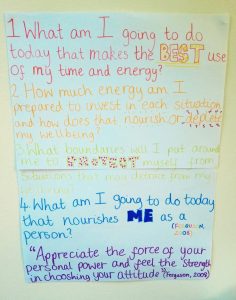 1 What am I going to do
today that makes the BEST use
of my time and energy?
2 How much energy am I
prepared to invest in each situation
and how does that nourish or deplete
my wellbeing?
3 What boundaries will I put around
me to PROTECT myself from
situations that may distract from my
wellbeing?
4. What am I going to do today
that nourishes ME as a
person? (Ferguson,
2009)
"Appreciate the force of your
personal power and feel the strength
in choosing your attitude" (Ferguson, 2009)